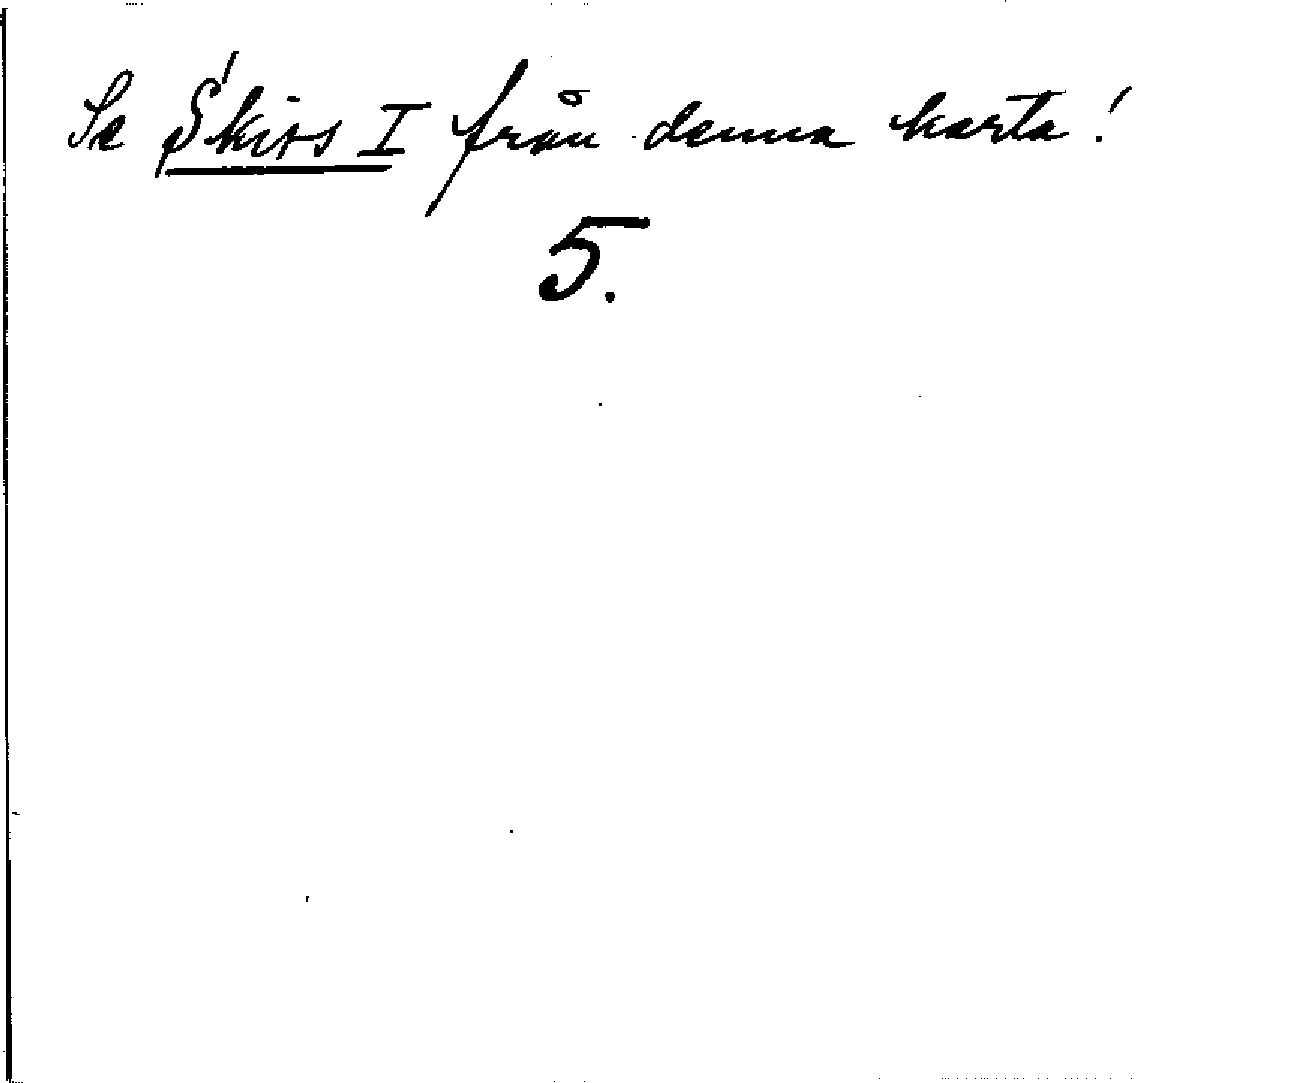 Se Skirs I från denna karta!
5.